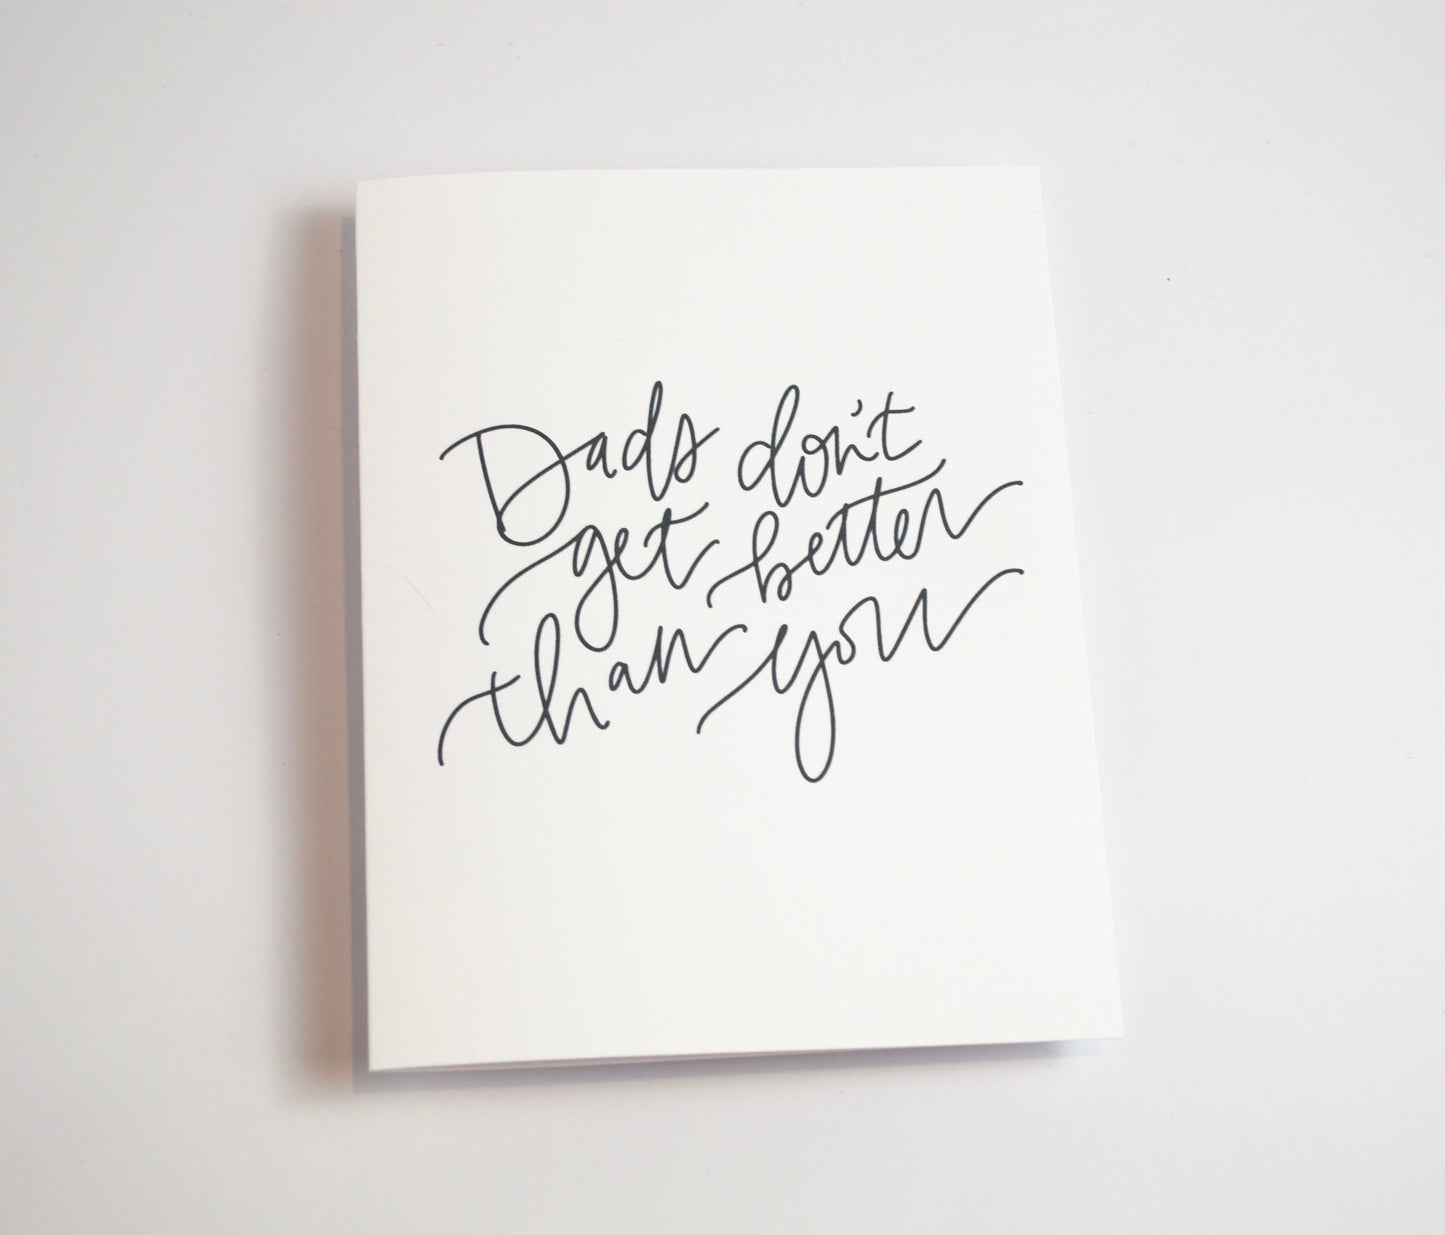 Dads don't
get better
than you